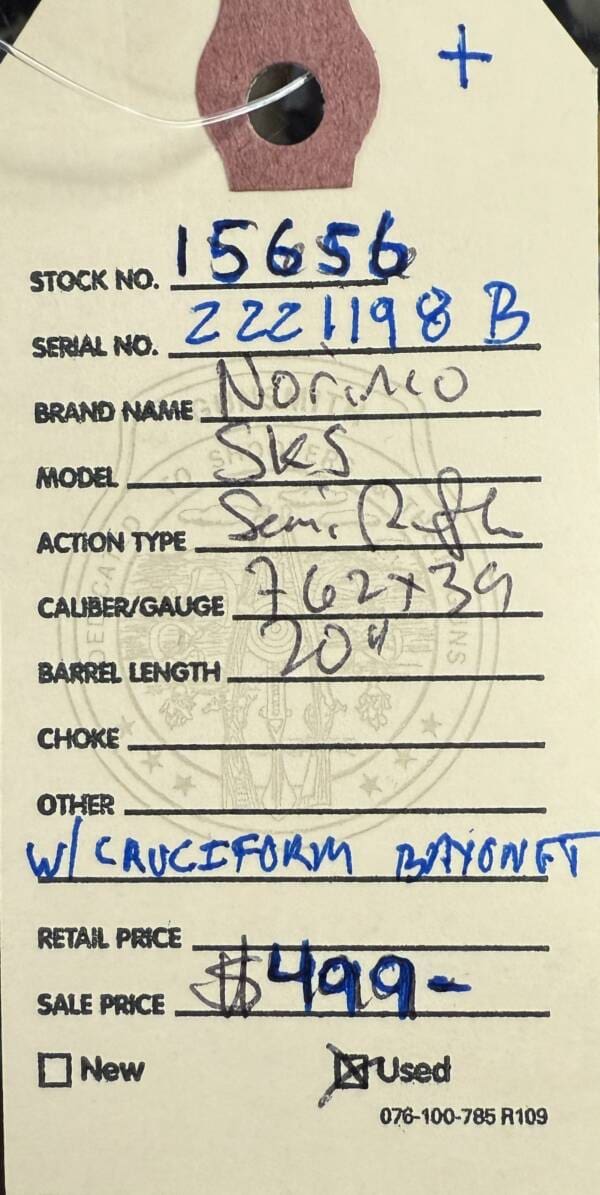 +
STOCK NO. 15656
SERIAL NO. 2221198 B
BRAND NAME Norinco
MODEL SKS
ACTION TYPE Semi Rifle
CALIBER/GAUGE 762x39
BARREL LENGTH 20"
CHOKE
OTHER
W/ CRUCIFORM BAYONET
RETAIL PRICE
SALE PRICE $499-
New Used
076-100-785 R109